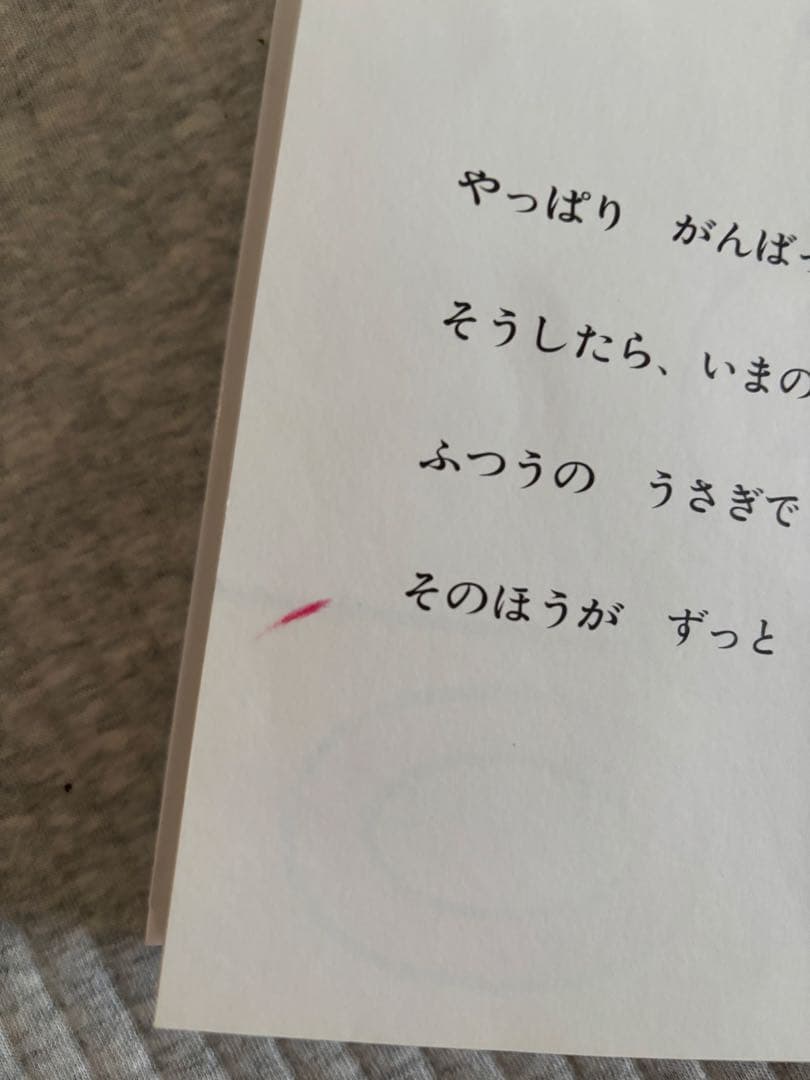 やっぱり　がんばっ
そうしたら、いまの
ふつうの　うさぎで
そのほうが　ずっと